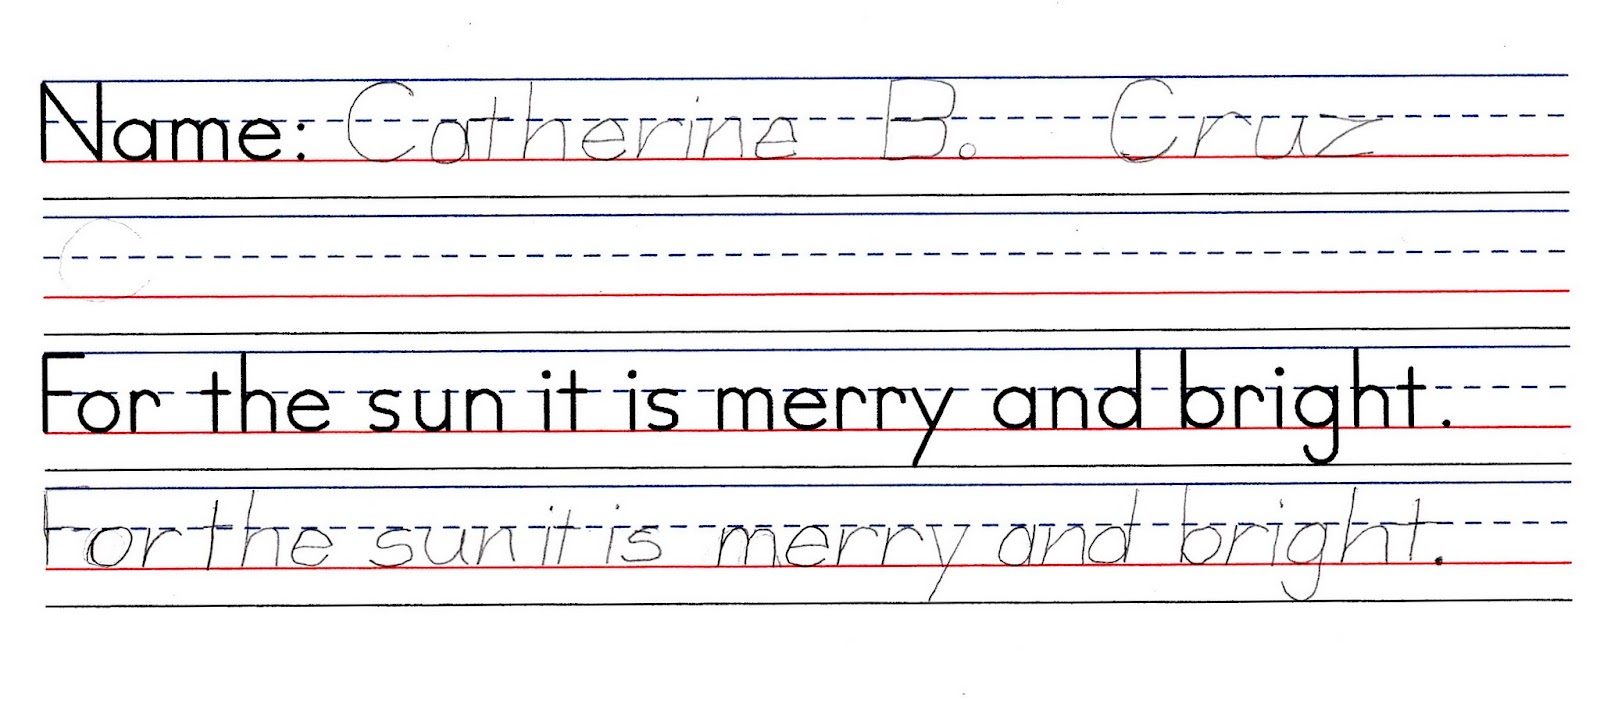 Name: Catherine B. Cruz
C
For the sun it is merry and bright.
For the sun it is merry and bright.